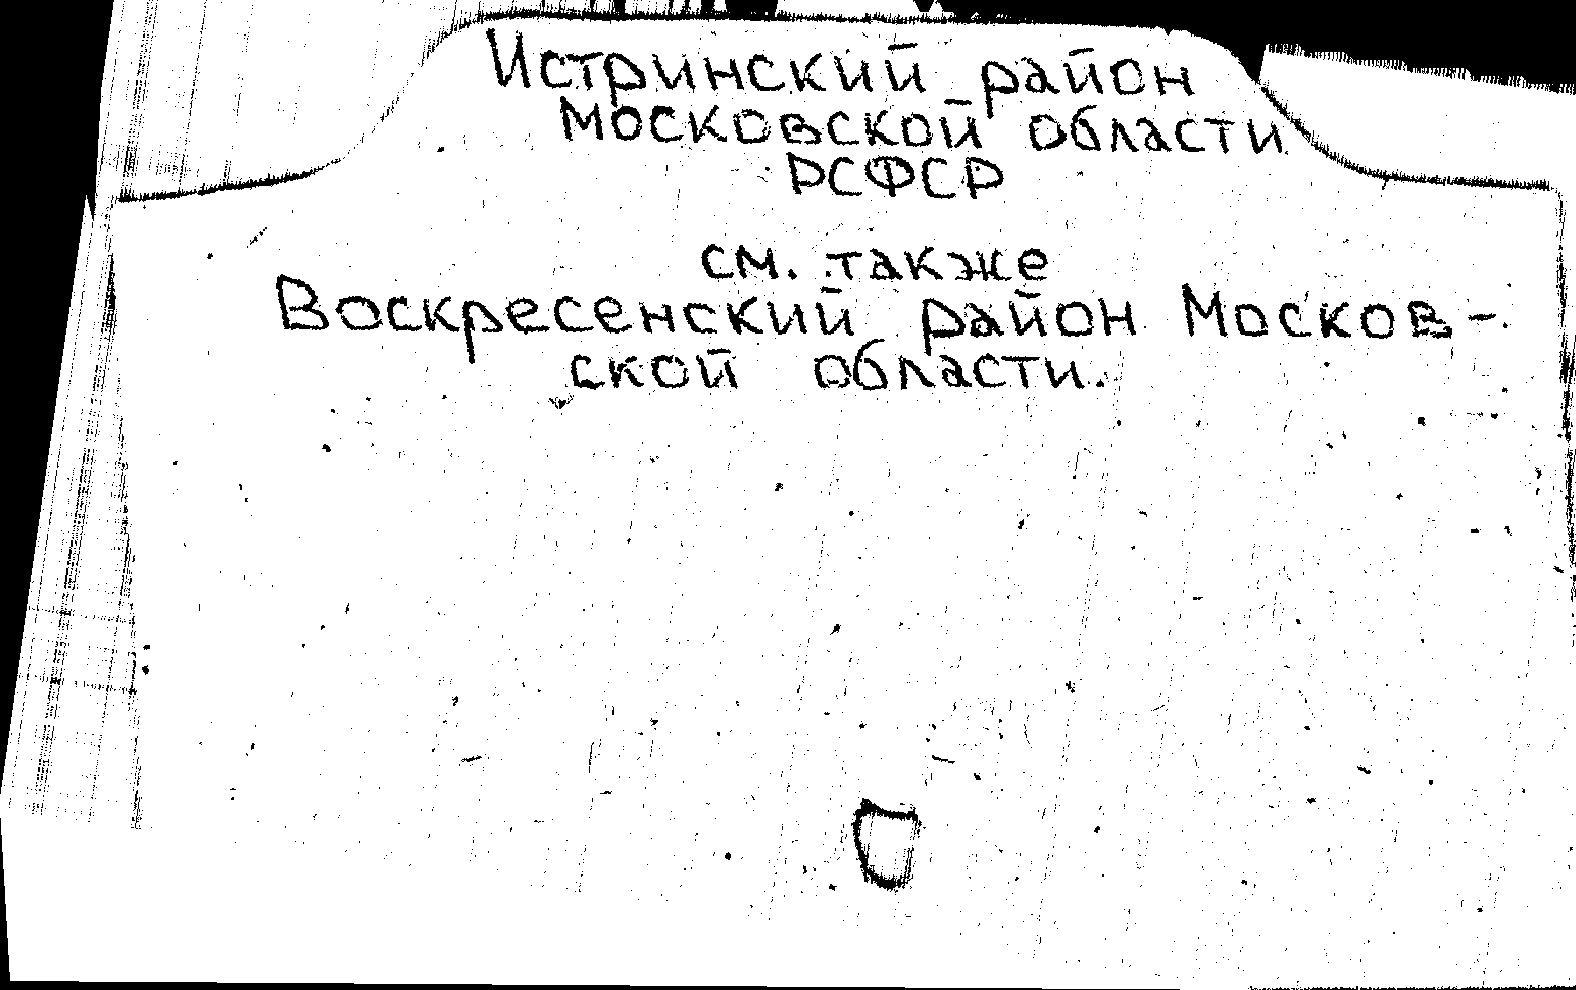 Истринский район
Московской области
РСФСР
см. также
Воскресенский район Москов-
ской области.